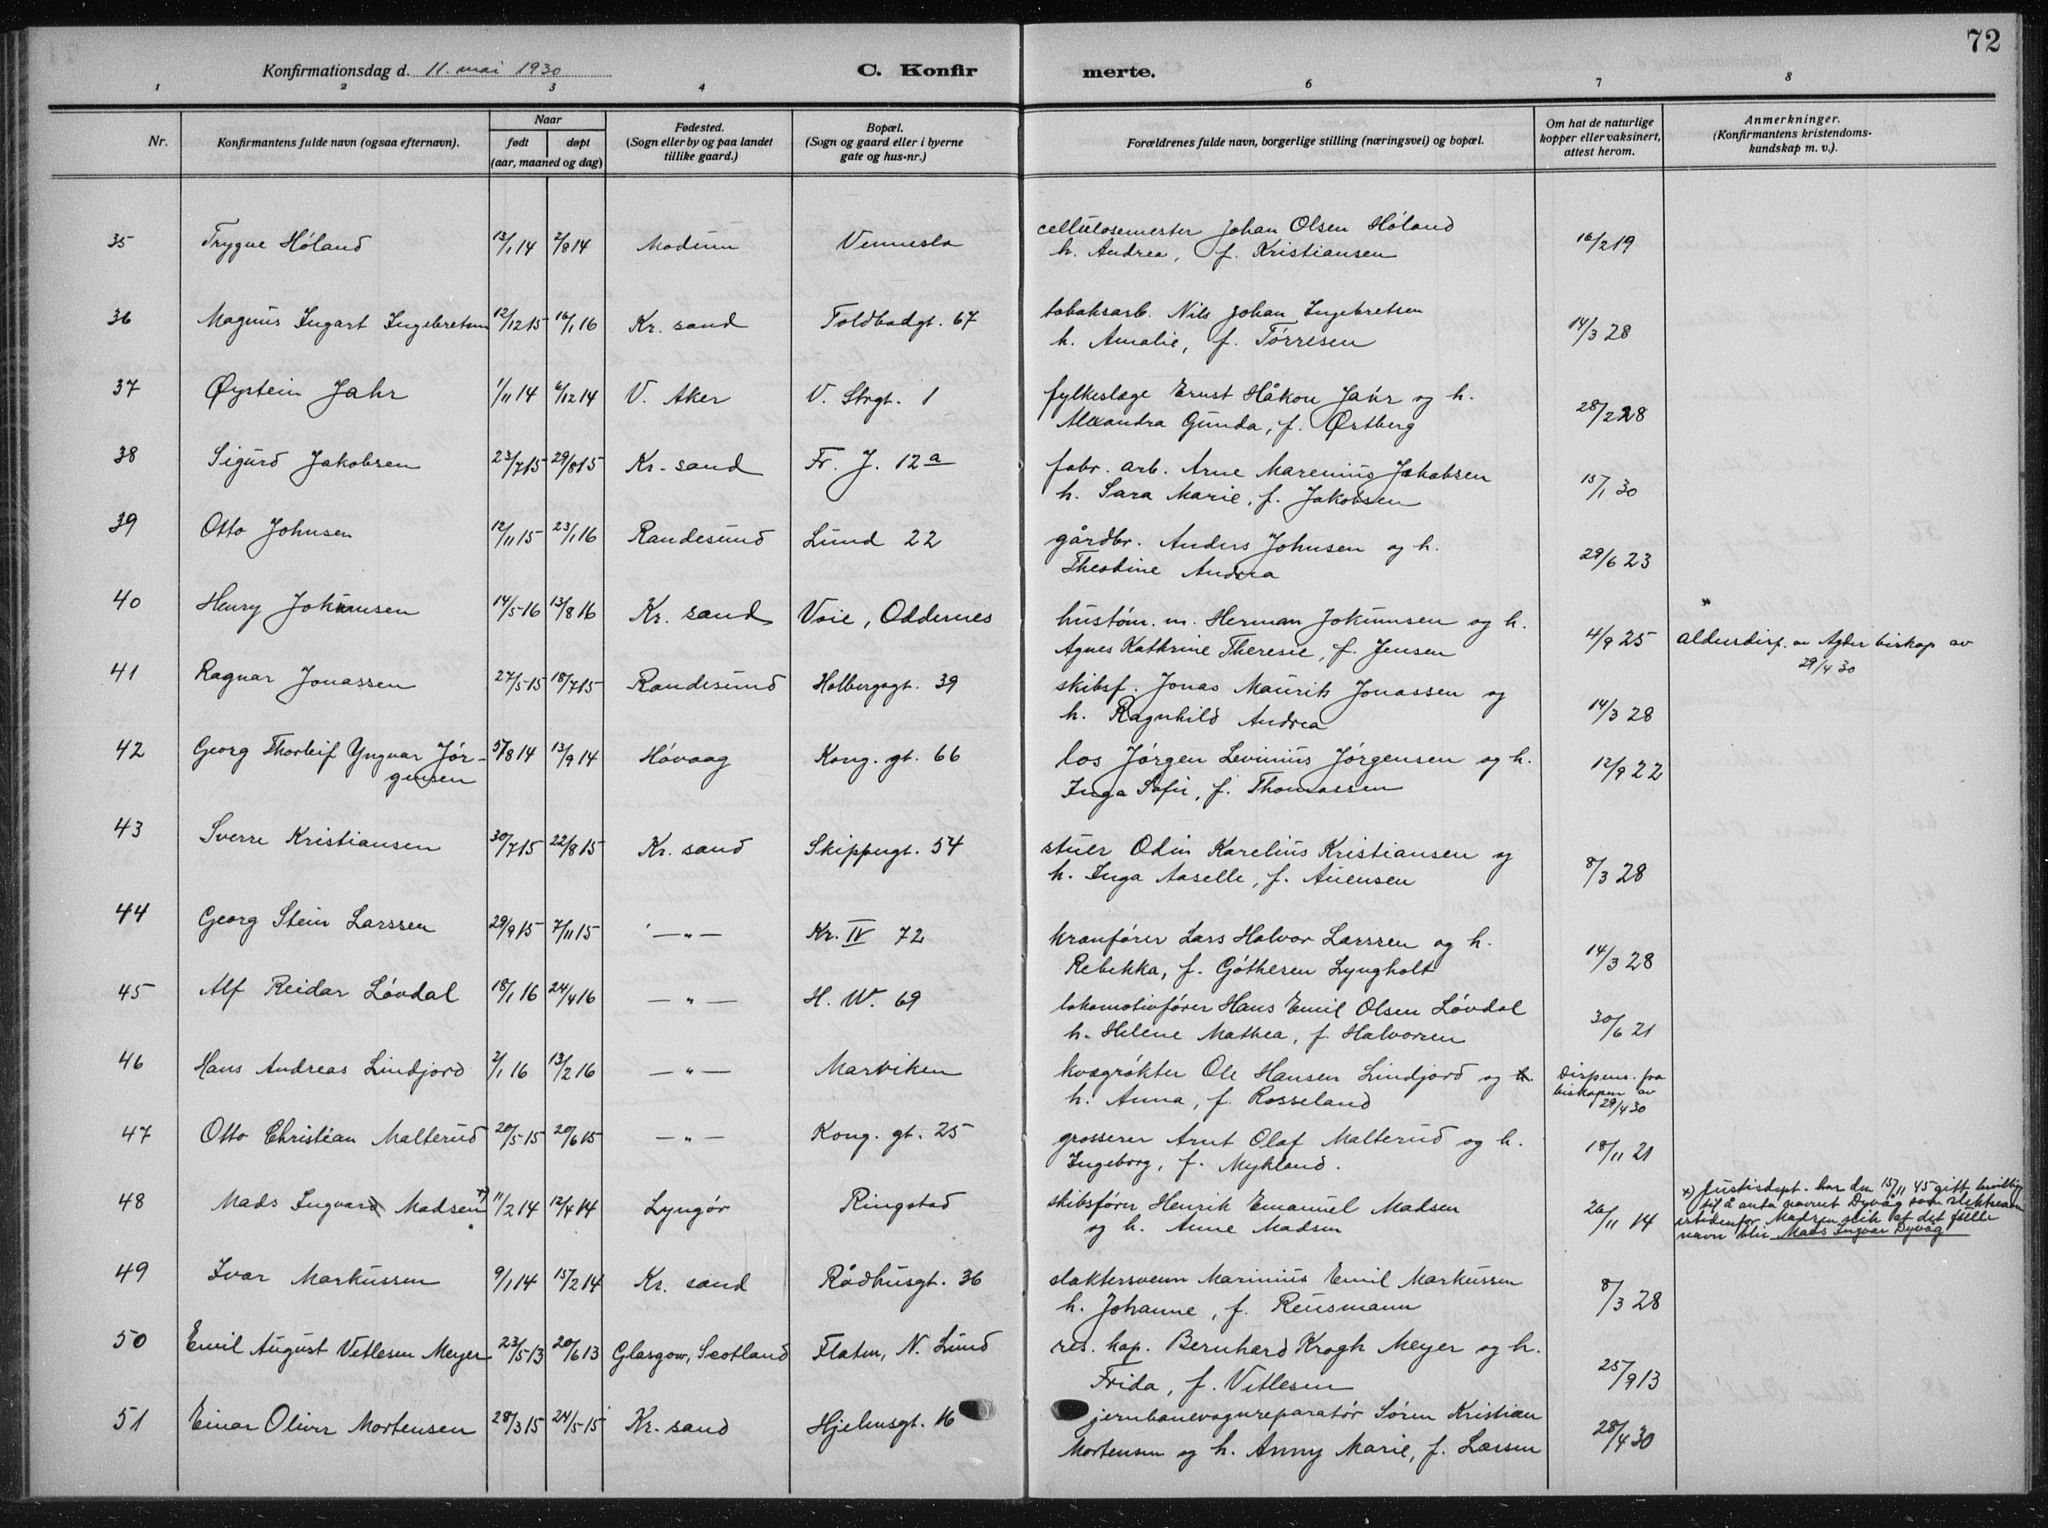 72
Konfirmationsdag d. 11. mai 1930 C. Konfir merte.
1 2 3 4 6 7 8
Nr. Konfirmantens fulde navn (ogsaa efternavn). Naar født døpt (aar, maaned og dag) Fødested. (Sogn eller by og paa landet tillike gaard.) Bopæl. (Sogn og gaard eller i byerne gate og hus-nr.) Forældrenes fulde navn, borgerlige stilling (næringsvei) og bopæl. Om hat de naturlige kopper eller vaksinert, attest herom. Anmerkninger. (Konfirmantens kristendoms- kundskap m. v.).
35 Trygve Hóland 13/1 14 2/8 14 Modum Vennesla cellulosemester Johan Olsen Hóland 16/2 19
h. Andrea, f. Kristiansen
36 Magnus Ingart Ingebretsen 12/12 15 16/1 16 Kr. sand Toldbodgt. 67 tobaksarb. Nils Johan Ingebretsen 14/3 28
h. Amalie, f. Tórresen
37 Øystein Jahr 1/11 14 6/12 14 V. Aker V. Strgt. 1 fylkeslæge Ernst Håkon Jahr og h. 28/2 28
Alexandra Gunda, f. Østberg
38 Sigurd Jakobsen 23/7 15 29/8 15 Kr. sand Fr. J. 12a fabr. arb. Arne Marenius Jakobsen 15/1 30
h. Sara Marie, f. Jakobsen
39 Otto Johnsen 12/11 15 23/1 16 Randesund Lund 22 gårdbr. Anders Johnsen og h. 29/6 23
Andrea
40 Henry Jokumsen 14/5-16 13/8 16 Kr. sand Voie, Oddernes hustóm. m. Herman Jokumsen og h. 4/9 25 aldersdisp. av Agder biskop av
Agnes Kathrine Theresie, f. Jensen 29/4 30
41 Ragnar Jonassen 27/5-15 18/7 15 Randesund Holbergsgt. 39 skibsf. Jonas Maurits Jonassen og 14/3 28
h. Ragnhild Andrea
42 Georg Thorleif Yngvar Jór- 5/8 14 13/9 14 Hóvaag Kong. gt. 66 los Jórgen Levinius Jórgensen og h. 12/9 22
gensen Inga Sofie, f. Thomassen
43 Sverre Kristiansen 30/7 15 22/8 15 Kr. sand Skippergt. 54 stuer Odin Karelius Kristiansen og 8/3 28
h. Inga Aaselle, f. Auensen
44 Georg Stein Larssen 29/9 15 7/11 15 —"— Kr. IV 72 kranfórer Lars Halvor Larssen og h. 14/3 28
Rebekka, f. Gótheren Lyngholt
45 Alf Reidar Lóvdal 18/1 16 24/4 16 —"— H. W. 69 lokomotivfórer Hans Emil Olsen Lóvdal 30/6 21
h. Helene Mathea, f. Halvorsen
46 Hans Andreas Lindjord 2/1 16 13/2 16 —"— Marviken kvægrókter Ole Hansen Lindjord og h. Dispens. fra
h. Anna, f. Rosseland biskopen av
29/4 30
47 Otto Christian Malterud 20/5-15 20/6 15 —"— Kong. gt. 25 grosserer Arnt Olaf Malterud og h. 18/11 21
Ingeborg, f. Mykland.
48 Mads Ingvard Madsen x) 11/2 14 12/4 14 Lyngór Ringstad skibsfórer Henrik Emanuel Madsen 26/11 14 x) Justisdept. har den 15/11 45 gitt bevilling
og h. Anne Madsen til å anta navnet Dyvåg som slektsnavn
istedenfor Madsen slik at det fulle
navn blir Mads Ingvar Dyvåg
49 Ivar Markussen 9/1 14 15/2 14 Kr. sand Rådhusgt. 36 slaktersvenn Marinius Emil Markussen 8/3 28
h. Johanne, f. Reusmann
50 Emil August Vetlesen Meyer 23/5 13 20/6 13 Glasgow, Scotland Flaten, N. Lund res. kap. Bernhard Krogh Meyer og h. 25/9 13
Frida, f. Vetlesen
51 Einar Oliver Mortensen 28/3 15 24/5-15 Kr. sand Hjelmsgt. 16 jernbanevognreparatór Sóren Kristian 28/4 30
Mortensen og h. Anny Marie, f. Larsen